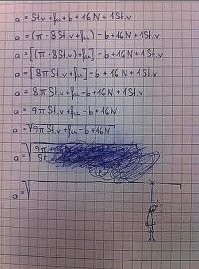 a = St.v + fu + b + 16N + 1St.v
a = (π · 8St.v) + fu) - b + 16N + 1St.v
a = [(π · 8St.v) + fu] - b + 16N + 1St.v
a = [8πSt.v + fu] - b + 16N + 1St.v
a = 8πSt.v + fu - b + 16N + 1St.v
a = 9πSt.v + fu - b + 16N
a = √9πSt.v + fu - b + 16N
a = √
a = √